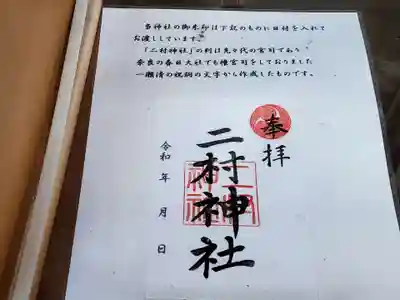 当神社の御朱印は下記のものに日付を入れて
お渡ししています。
「二村神社」の判は先々代の宮司であり
奈良の春日大社でも権宮司をしておりました
一願清の祝詞の文字から作成したものです。
奉拝
二村神社
令和 年 月 日